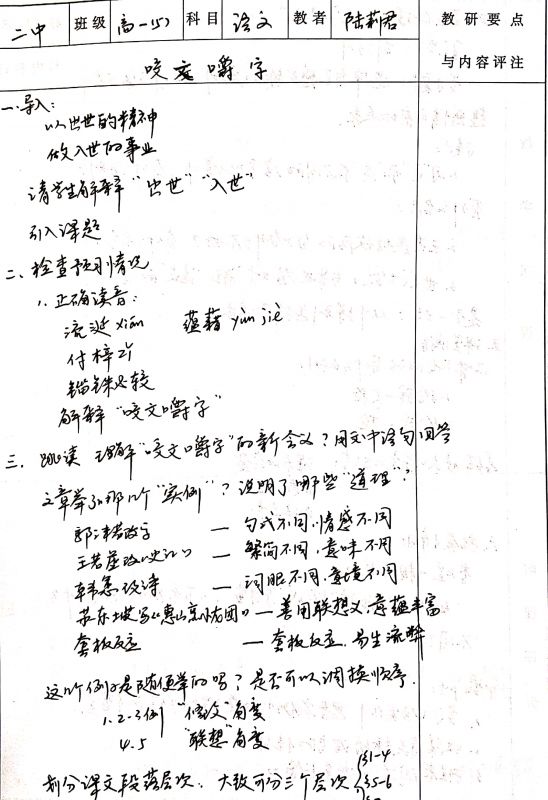 二中 班级 高一(5) 科目 语文 教者 陆莉君 教研要点
与内容评注
咬文嚼字
一.导入:
以出世的精神
做入世的事业
请学生解释"出世""入世"
引入课题
二、检查预习情况
1.正确读音:
流涎xián 蕴藉yùn jiè
付梓zǐ
锱铢必较
解释"咬文嚼字"
三、跳读 理解"咬文嚼字"的新含义?用文中语句回答
文章举了哪几个"实例"?说明了哪些"道理"?
郭沫若改字 — 句式不同,情感不同
王若虚改《史记》 — 繁简不同,意味不同
韩愈改诗 — 词眼不同,意境不同
苏东坡写《惠山烹小龙团》— 善用联想义,意蕴丰富
套板反应 — 套板反应,易生流弊
这几个例子是随便举的吗?是否可以调换顺序.
1.2.3例 "修改"角度
4.5 "联想"角度
划分课文段落层次.大致可分三个层次 §1-4
§5-6